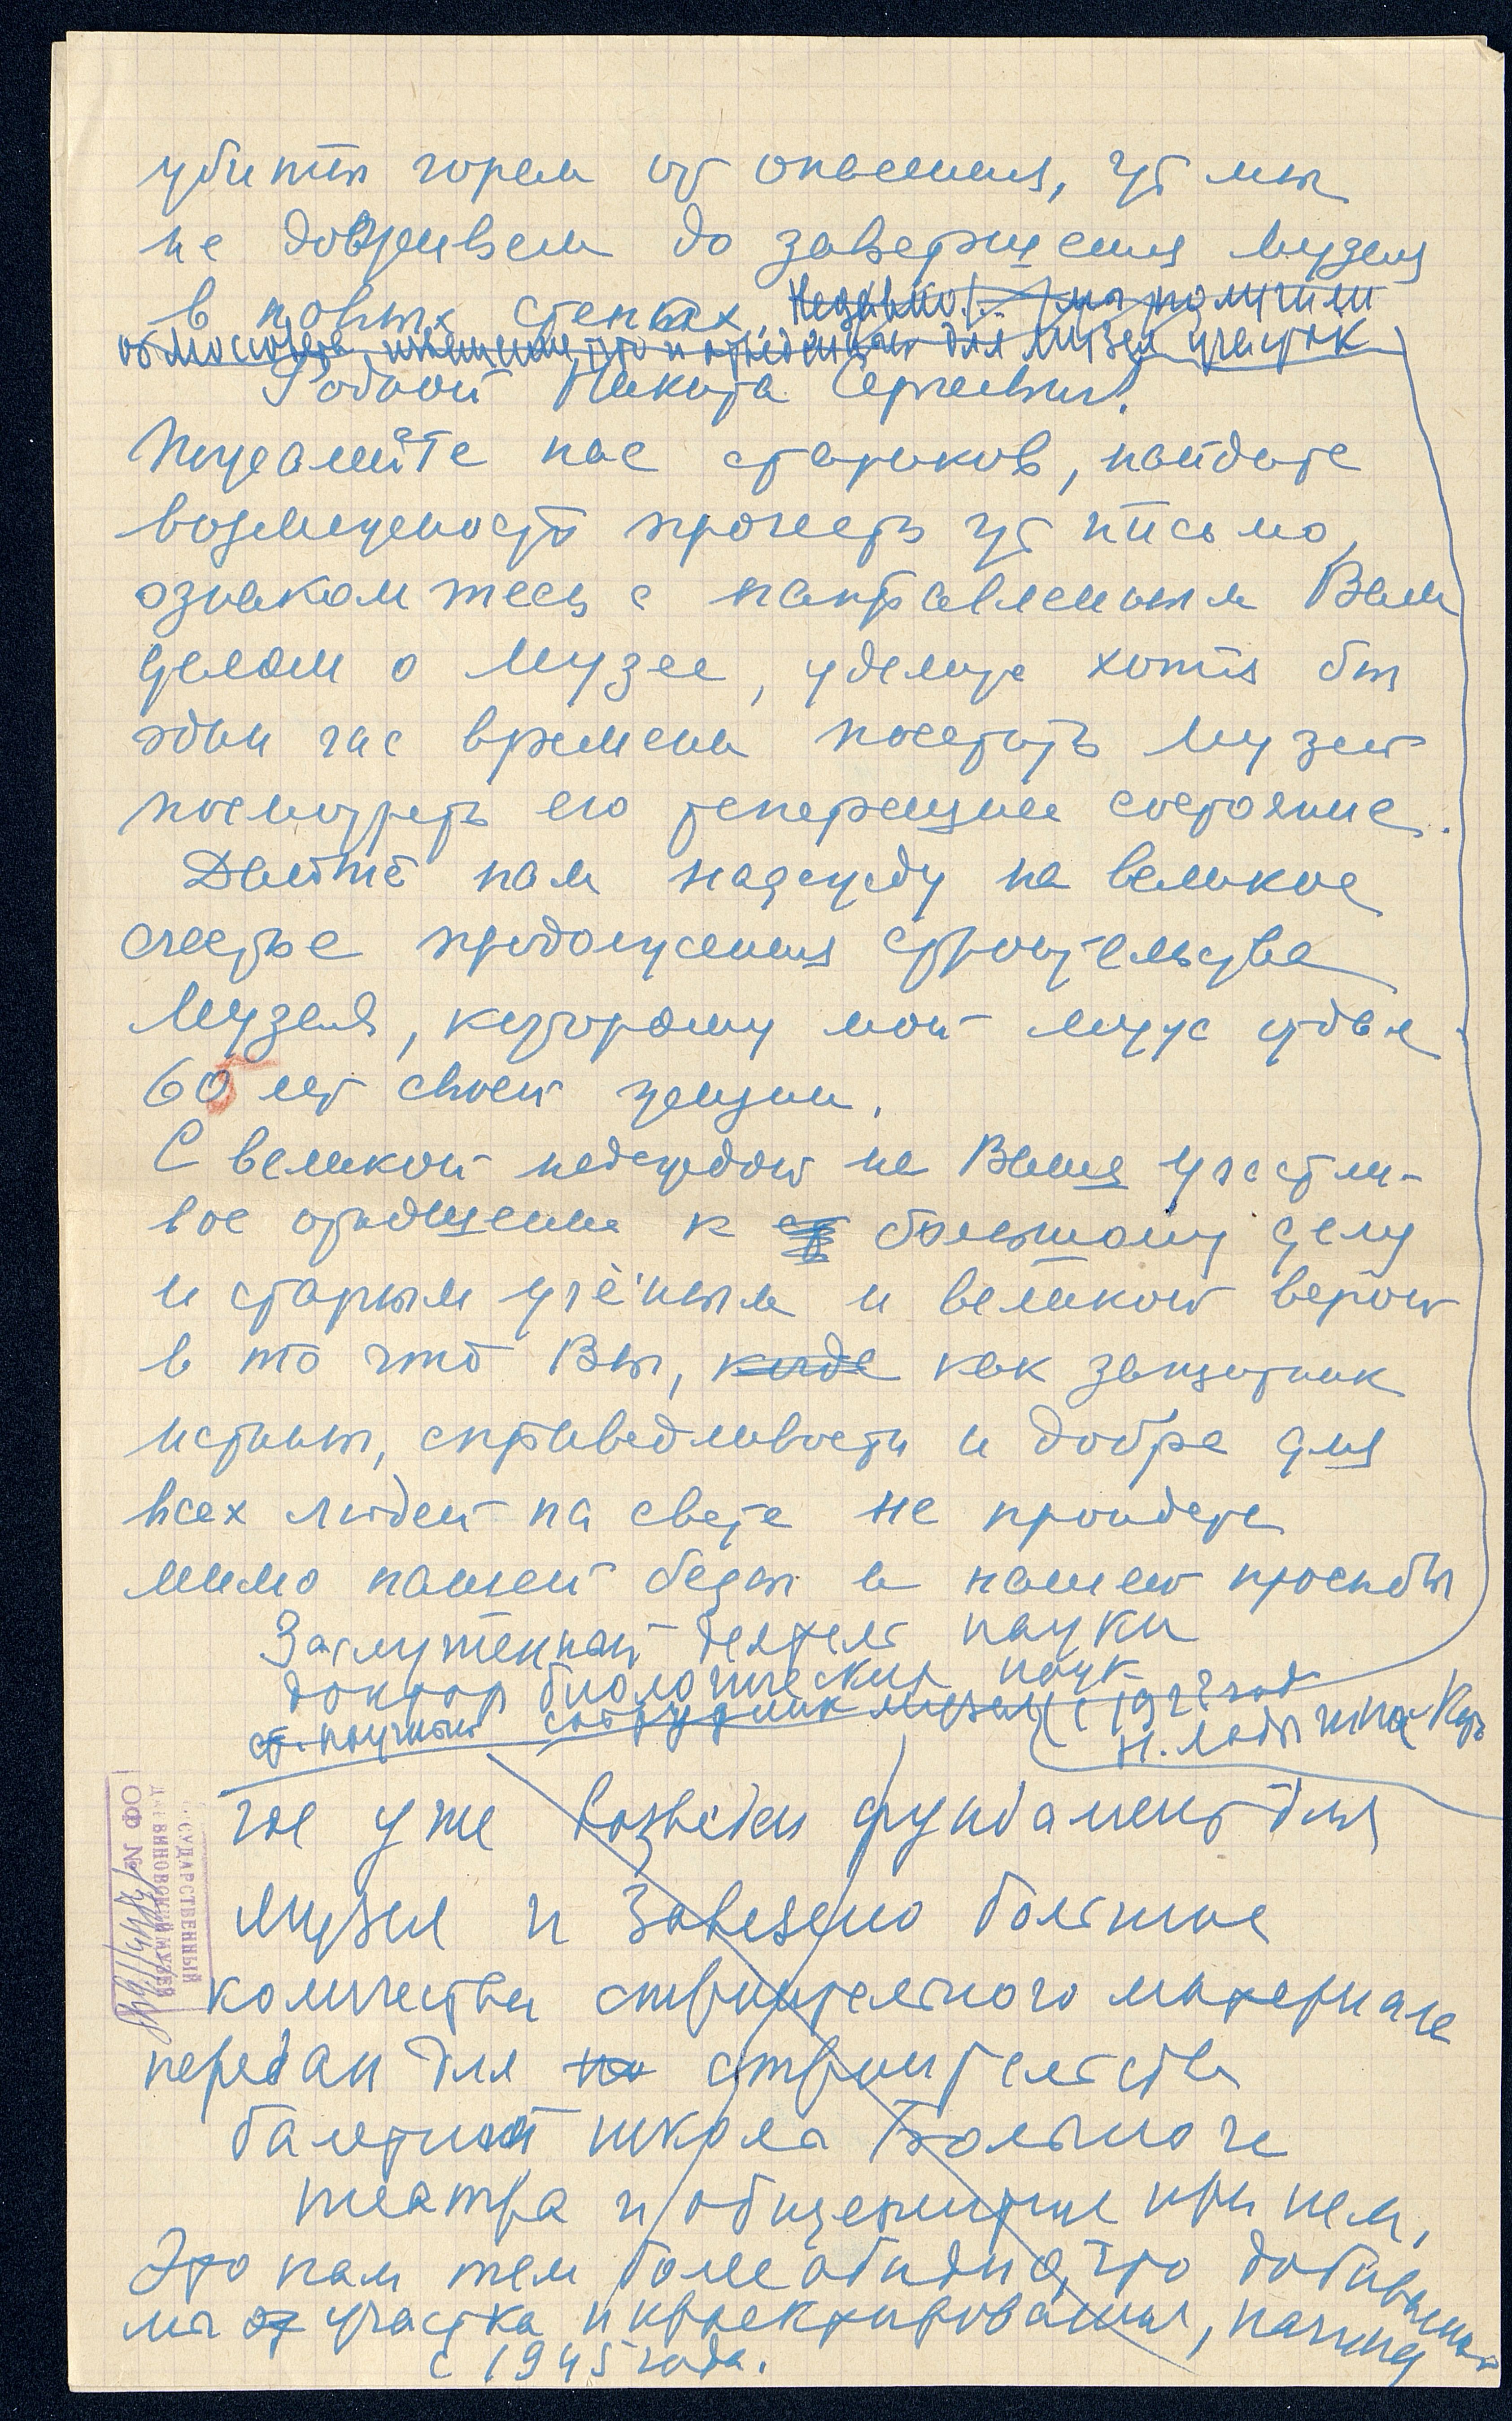 убиты горем от опасения, что мы
не доживем до завершения Музея
в новых стенах. Недавно мы получили
от Моссовета извещение, что отведенный для Музея участок
Родной Никита Сергеевич!
Пожалейте нас стариков, найдите
возможность прочесть это письмо,
ознакомтесь с направленным Вам
делом о Музее, уделите хотя бы
один час времени посетить Музей
посмотреть его теперешнее состояние.
Дайте нам надежду на великое
счастье продолжения строительства
Музея, которому мой муж отдал
60 лет своей жизни.
С великой надеждой на Ваше участли-
вое отношение к большому делу
и старым учёным и великой верой
в то что Вы, как защитник
истины, справедливости и добра для
всех людей на свете не пройдете
мимо нашей беды и нашей просьбы
Заслуженный деятель науки
доктор биологических наук
ст. научный сотрудник музея с 192 года
Н. Ладыгина-Котс
где уже возведен фундамент для
Музея и завезено большое
количество строительного материала
передан для строительства
балетной школы Большого
театра и общежития при нем,
Это нам тем более обидно, что добивались
мы участка и проектирования, начиная
с 1945 года.
ГОСУДАРСТВЕННЫЙ
ДАРВИНОВСКИЙ МУЗЕЙ
ОФ №